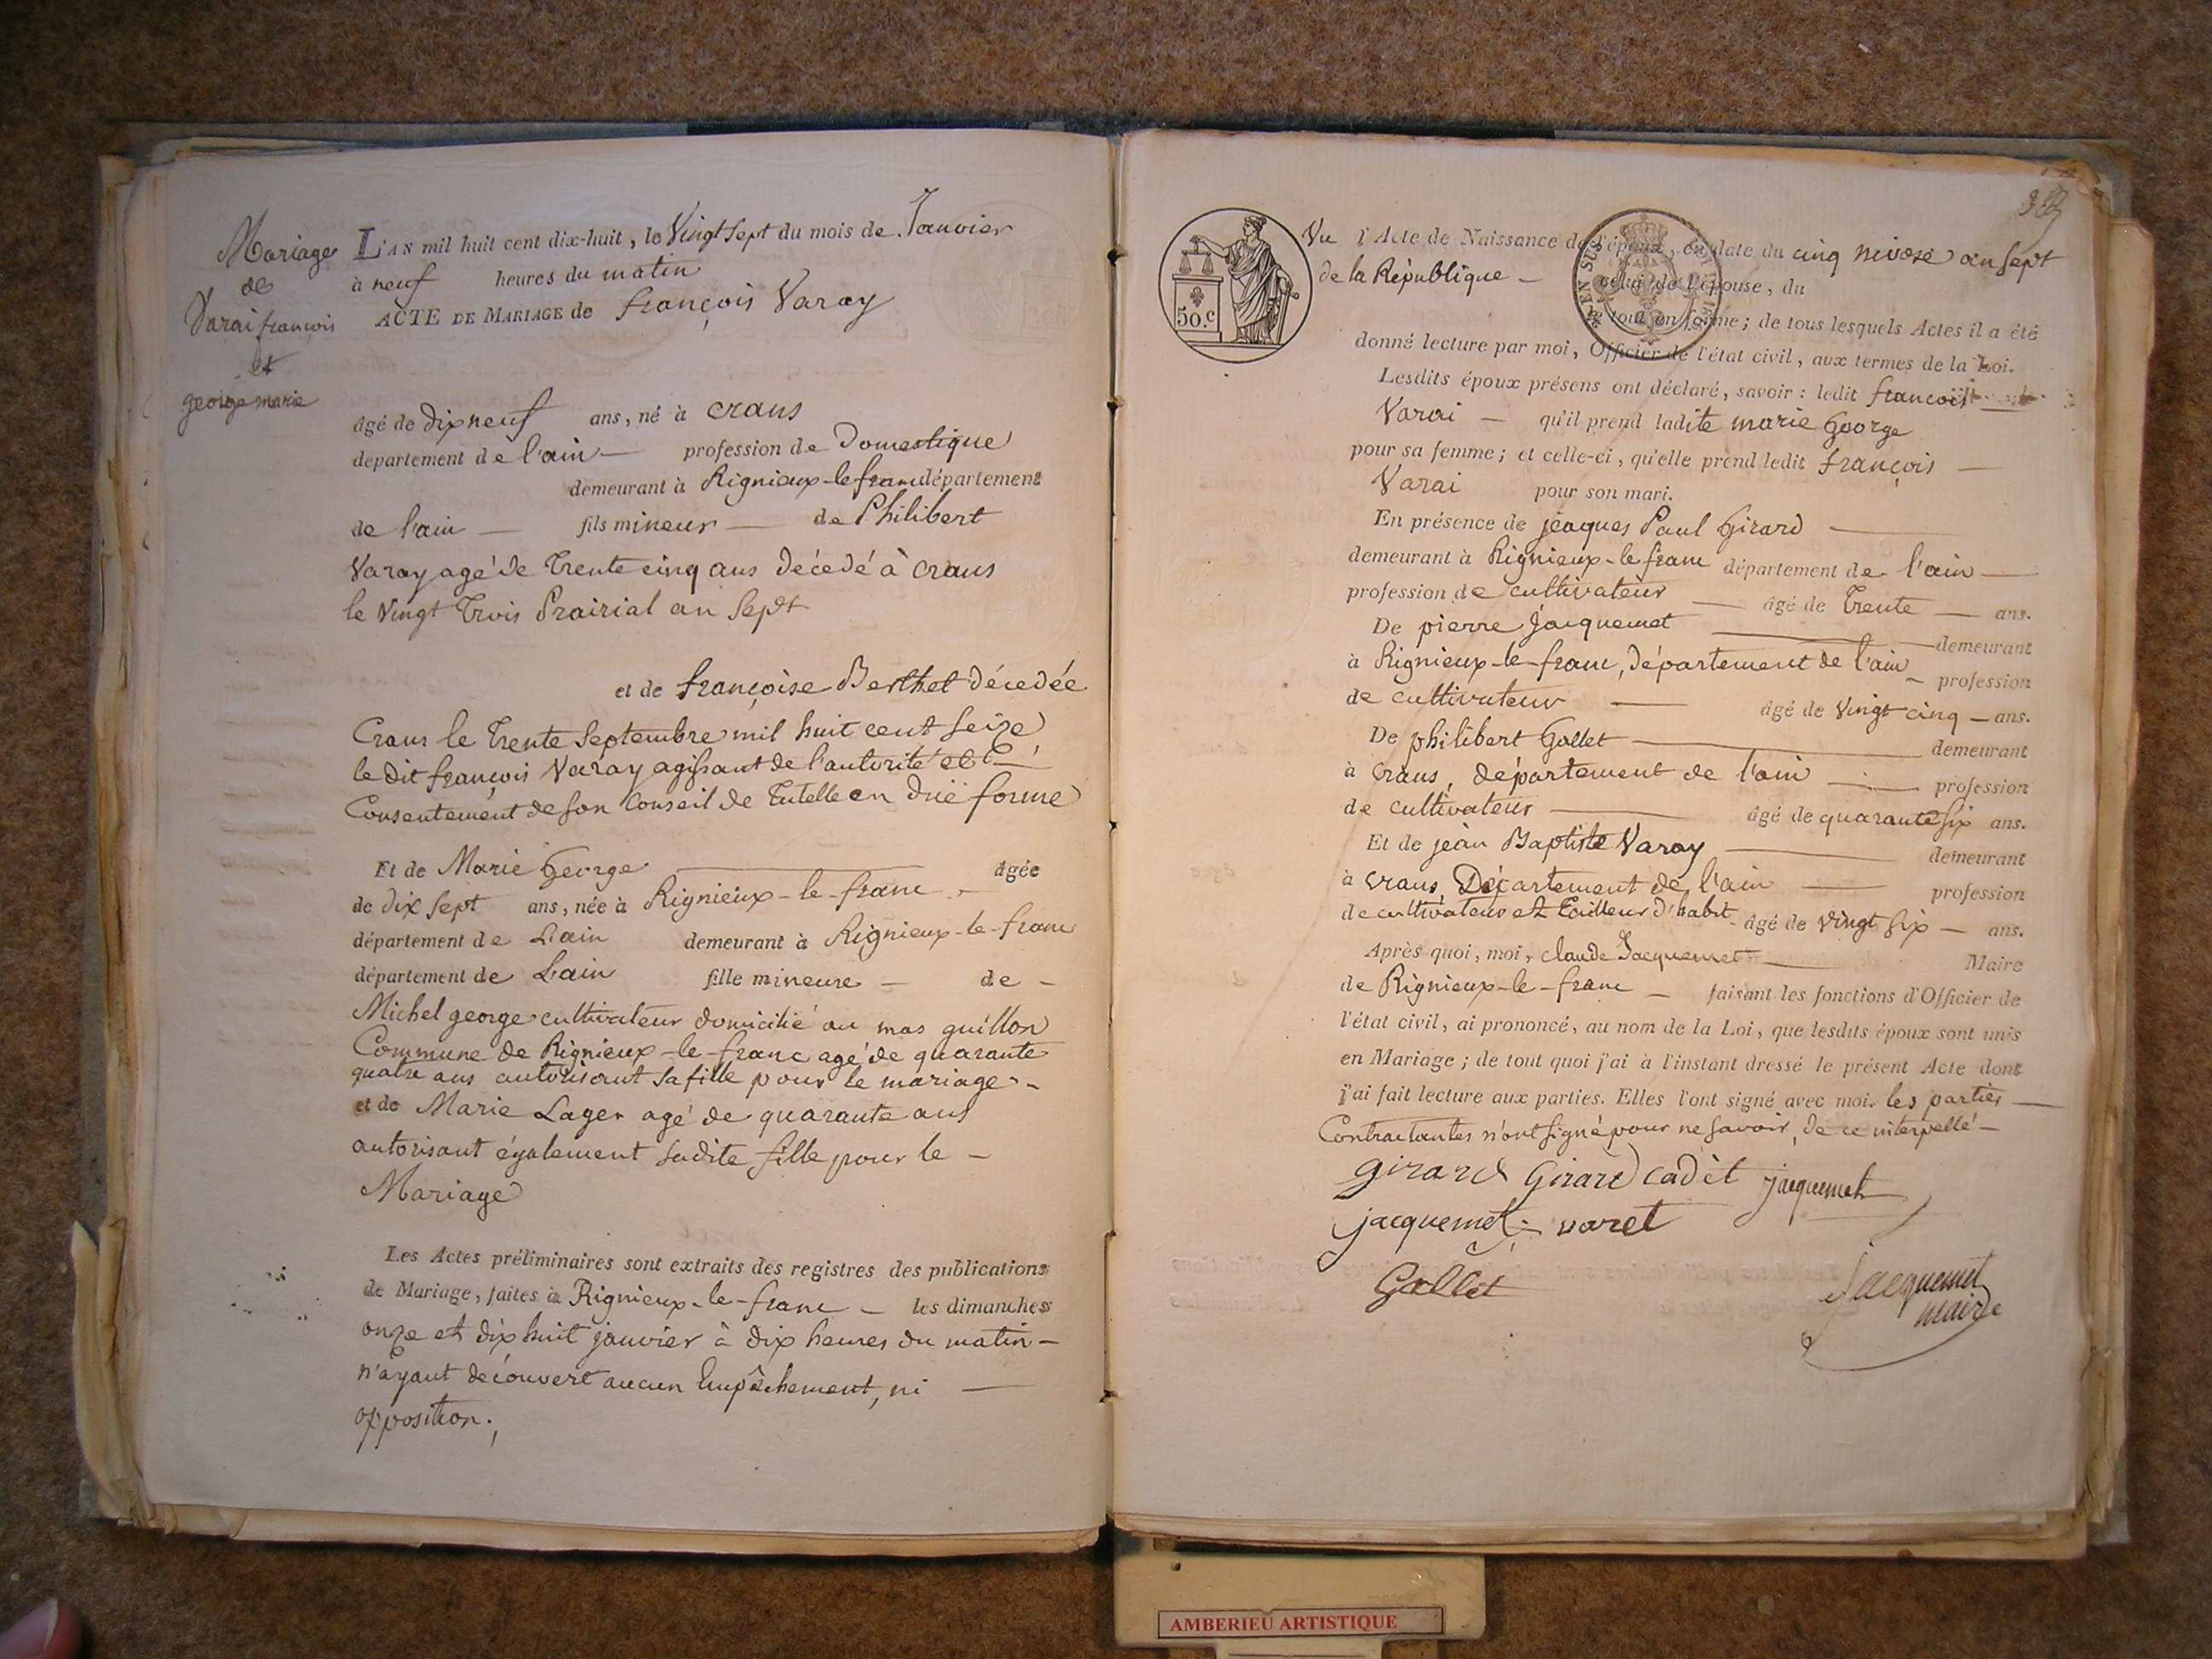 Mariage
de
Varai françois
et
george marie
L'AN mil huit cent dix-huit, le Vingt Sept du mois de Janvier
à neuf heures du matin
ACTE DE MARIAGE de françois Varay
âgé de dix neuf ans, né à Crans
département de l'ain — profession de Domestique
demeurant à Rignieux-le franc département
de l'ain — fils mineur — de Philibert
Varay agé de Trente cinq ans décedé à Crans
le Vingt Trois Prairial an Sept
et de françoise Berthet décedée
Crans le Trente Septembre mil huit cent Seize
le dit françois Varay agissant de l'autorité et
Consentement de Son Conseil de Tutelle en düe forme
Et de Marie George — agée
de dix Sept ans, née à Rignieux-le-franc -
département de Lain demeurant à Rignieux-le-franc
département de Lain fille mineure — de -
Michel george cultivateur domicilié au mas guillon
Commune de Rignieux-le-franc agé de quarante
quatre ans autorisant sa fille pour le mariage -
et de Marie Lager agé de quarante ans
autorisant également sadite fille pour le —
Mariage
Les Actes préliminaires sont extraits des registres des publications
de Mariage, faites à Rignieux-le-franc — les dimanches
onze et dix huit janvier à dix heures du matin —
n'ayant découvert aucun Empêchement, ni —
opposition.,
50.c
Vu l'Acte de Naissance de l'époux, en date du cinq nivose an Sept
de la République — celui de l'épouse, du
le tout en forme; de tous lesquels Actes il a été
donné lecture par moi, Officier de l'état civil, aux termes de la Loi.
Lesdits époux présens ont déclaré, savoir: ledit françois
Varai — qu'il prend ladite marie George
pour sa femme; et celle-ci, qu'elle prend ledit françois —
Varai pour son mari.
En présence de jeaques Paul Girard —
demeurant à Rignieux-le franc département de l'ain —
profession de cultivateur — âgé de Trente — ans.
De pierre Jacquemet — demeurant
à Rignieux-le-franc, département de l'ain - profession
de cultivateur — âgé de Vingt cinq — ans.
De philibert Gollet — demeurant
à Crans, département de l'ain — profession
de cultivateur — âgé de quarante Six ans.
Et de jean Baptiste Varay — demeurant
à Crans, Département de l'ain — profession
de cultivateur et Tailleur d'habit - âgé de Vingt Six — ans.
Après quoi, moi, claude Jacquemet — Maire
de Rignieux-le-franc — faisant les fonctions d'Officier de
l'état civil, ai prononcé, au nom de la Loi, que lesdits époux sont unis
en Mariage; de tout quoi j'ai à l'instant dressé le présent Acte dont
j'ai fait lecture aux parties. Elles l'ont signé avec moi. les parties —
Contractantes n'ont Signé pour ne Savoir, de ce interpellé —
girard Girard cadet jacquemet
jacquemet varet
Gollet
Jacquemet
maire
AMBERIEU ARTISTIQUE